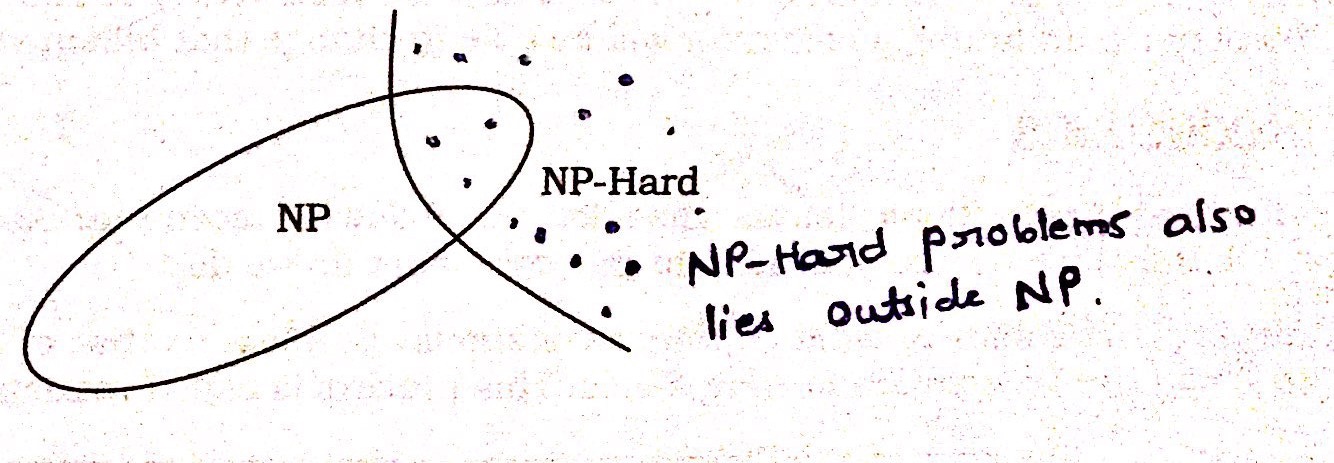 NP
NP-Hard
NP-Hard problems also
lies outside NP.